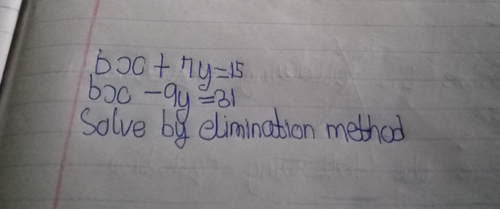 6x + 7y = 15
6x - 9y = 31
Solve by elimination method